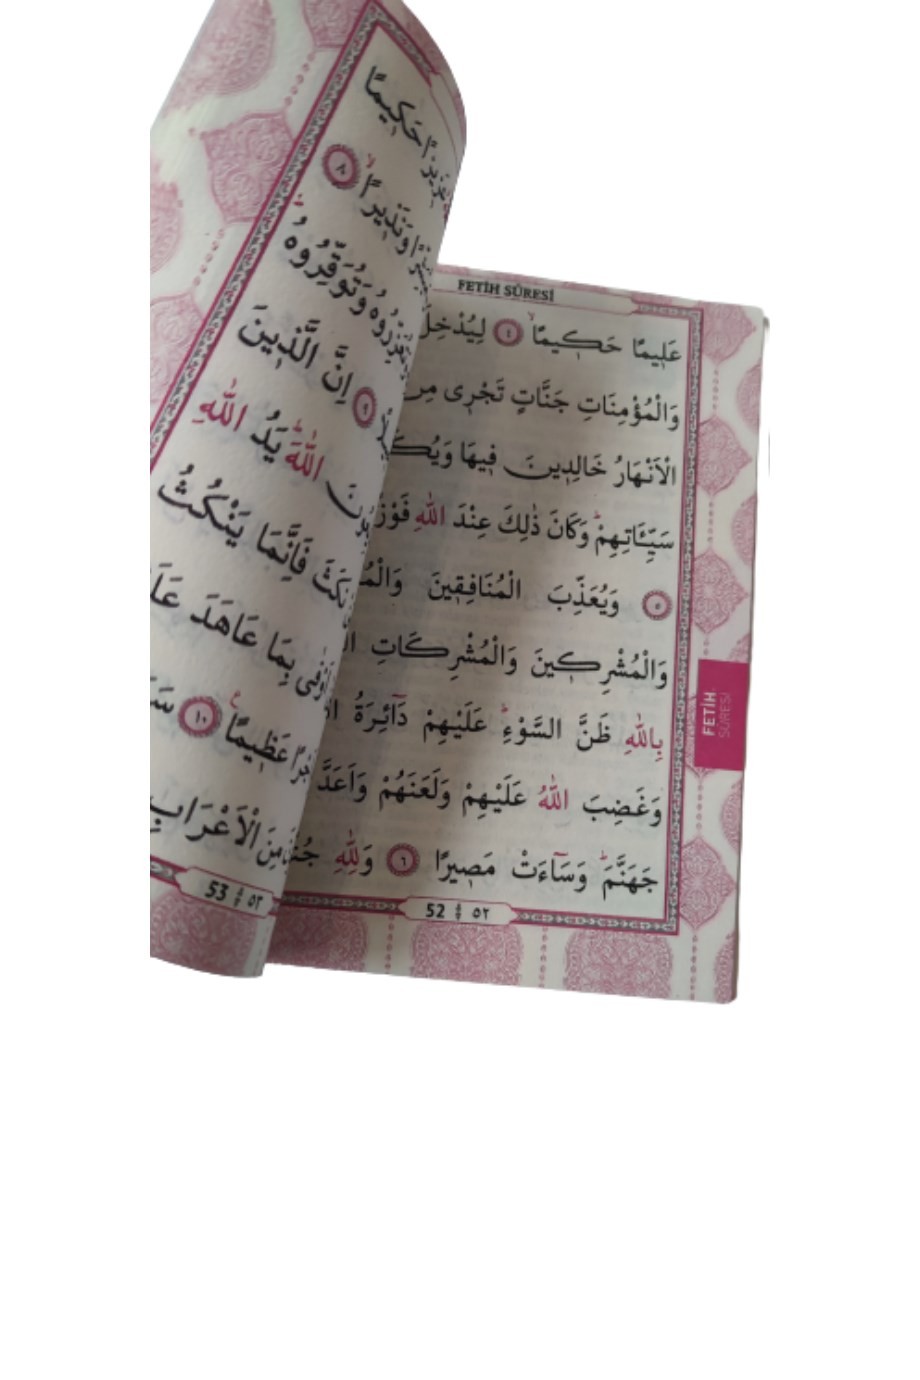 FETİH SÛRESİ
عَلِيمًا حَكِيمًا ۙ ٤ لِيُدْخِلَ
وَالْمُؤْمِنَاتِ جَنَّاتٍ تَجْرِى
الْاَنْهَارُ خَالِدِينَ فِيهَا
سَيِّـَٔاتِهِمْ ۜ وَكَانَ ذٰلِكَ عِنْدَ اللّٰهِ
٥ وَيُعَذِّبَ الْمُنَافِقِينَ
وَالْمُشْرِكِينَ وَالْمُشْرِكَاتِ
بِاللّٰهِ ظَنَّ السَّوْءِ ۜ عَلَيْهِمْ دَٓائِرَةُ
وَغَضِبَ اللّٰهُ عَلَيْهِمْ وَلَعَنَهُمْ وَاَعَدَّ
جَهَنَّمَ ۜ وَسَٓاءَتْ مَصِيرًا ٦ وَلِلّٰهِ
52 ٥٢
FETİH
SÛRESİ
حَكِيمًا
وَنَذِيرًا ۙ ٨
وَتُوَقِّرُوهُ ۜ
٩ اِنَّ الَّذِينَ
اللّٰهَ ۜ يَدُ اللّٰهِ
فَاِنَّمَا يَنْكُثُ
بِمَا عَاهَدَ
عَظِيمًا ۟ ١٠
مِنَ الْاَعْرَابِ
53 ٥٣